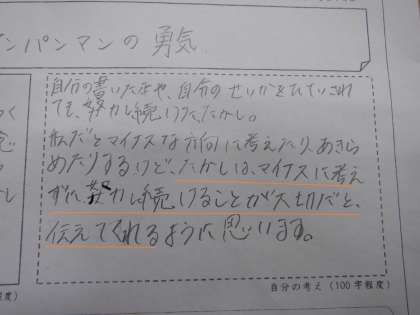 ンパンマンの勇気
自分の書いた本や、自分のせいかをひていされ
ても、努力し続けた、たかし。
私だとマイナスな方向に考えたり、あきら
めたりするけど、たかしは、マイナスに考え
ずに、努力し続けることが大切だと、
伝えてくれるように思います。
自分の考え(100字程度)
程度)